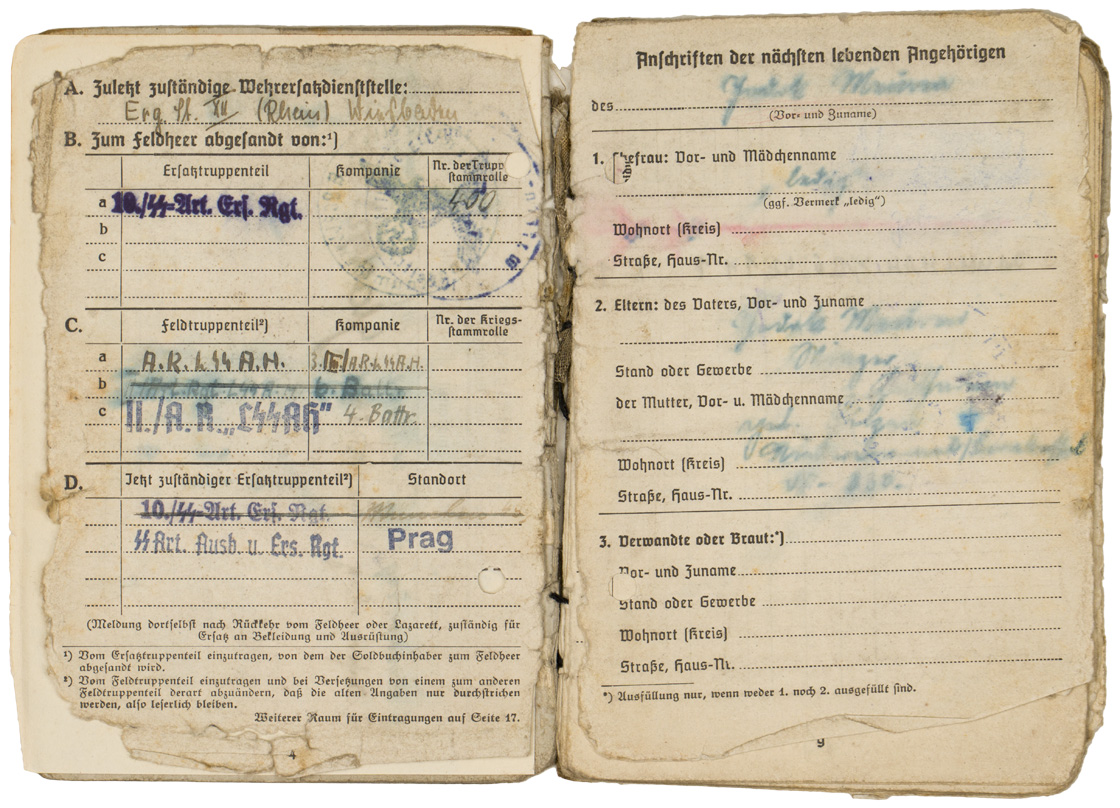 A. Zuletzt zuständige Wehrersatzdienststelle:
Erg. St. XII (Rhein) Wiesbaden
B. Zum Feldheer abgesandt von:¹)
Ersatztruppenteil Kompanie Nr. der Truppenstammrolle
a 10./SS-Art. Ers. Rgt. 400
b
c
C. Feldtruppenteil²) Kompanie Nr. der Kriegs-
stammrolle
a A.R. L.SS A.H. A.R.L.SSA.H.
b 6. Battr.
c II./A.R. „LSSAH" 4. Battr.
D. Jetzt zuständiger Ersatztruppenteil²) Standort
10./SS-Art. Ers. Rgt.
SS Art. Ausb. u. Ers. Rgt. Prag
(Meldung dortselbst nach Rückkehr vom Feldheer oder Lazarett, zuständig für
Ersatz an Bekleidung und Ausrüstung)
¹) Vom Ersatztruppenteil einzutragen, von dem der Soldbuchinhaber zum Feldheer
abgesandt wird.
²) Vom Feldtruppenteil einzutragen und bei Versetzungen von einem zum anderen
Feldtruppenteil derart abzuändern, daß die alten Angaben nur durchstrichen
werden, also leserlich bleiben.
Weiterer Raum für Eintragungen auf Seite 17.
4
Anschriften der nächsten lebenden Angehörigen
des
(Vor- und Zuname)
1. Ehefrau: Vor- und Mädchenname
ledig
(ggf. Vermerk „ledig")
Wohnort (Kreis)
Straße, Haus-Nr.
2. Eltern: des Vaters, Vor- und Zuname
Stand oder Gewerbe
der Mutter, Vor- u. Mädchenname
geb.
Wohnort (Kreis)
Straße, Haus-Nr.
3. Verwandte oder Braut:*)
Vor- und Zuname
Stand oder Gewerbe
Wohnort (Kreis)
Straße, Haus-Nr.
*) Ausfüllung nur, wenn weder 1. noch 2. ausgefüllt sind.
9